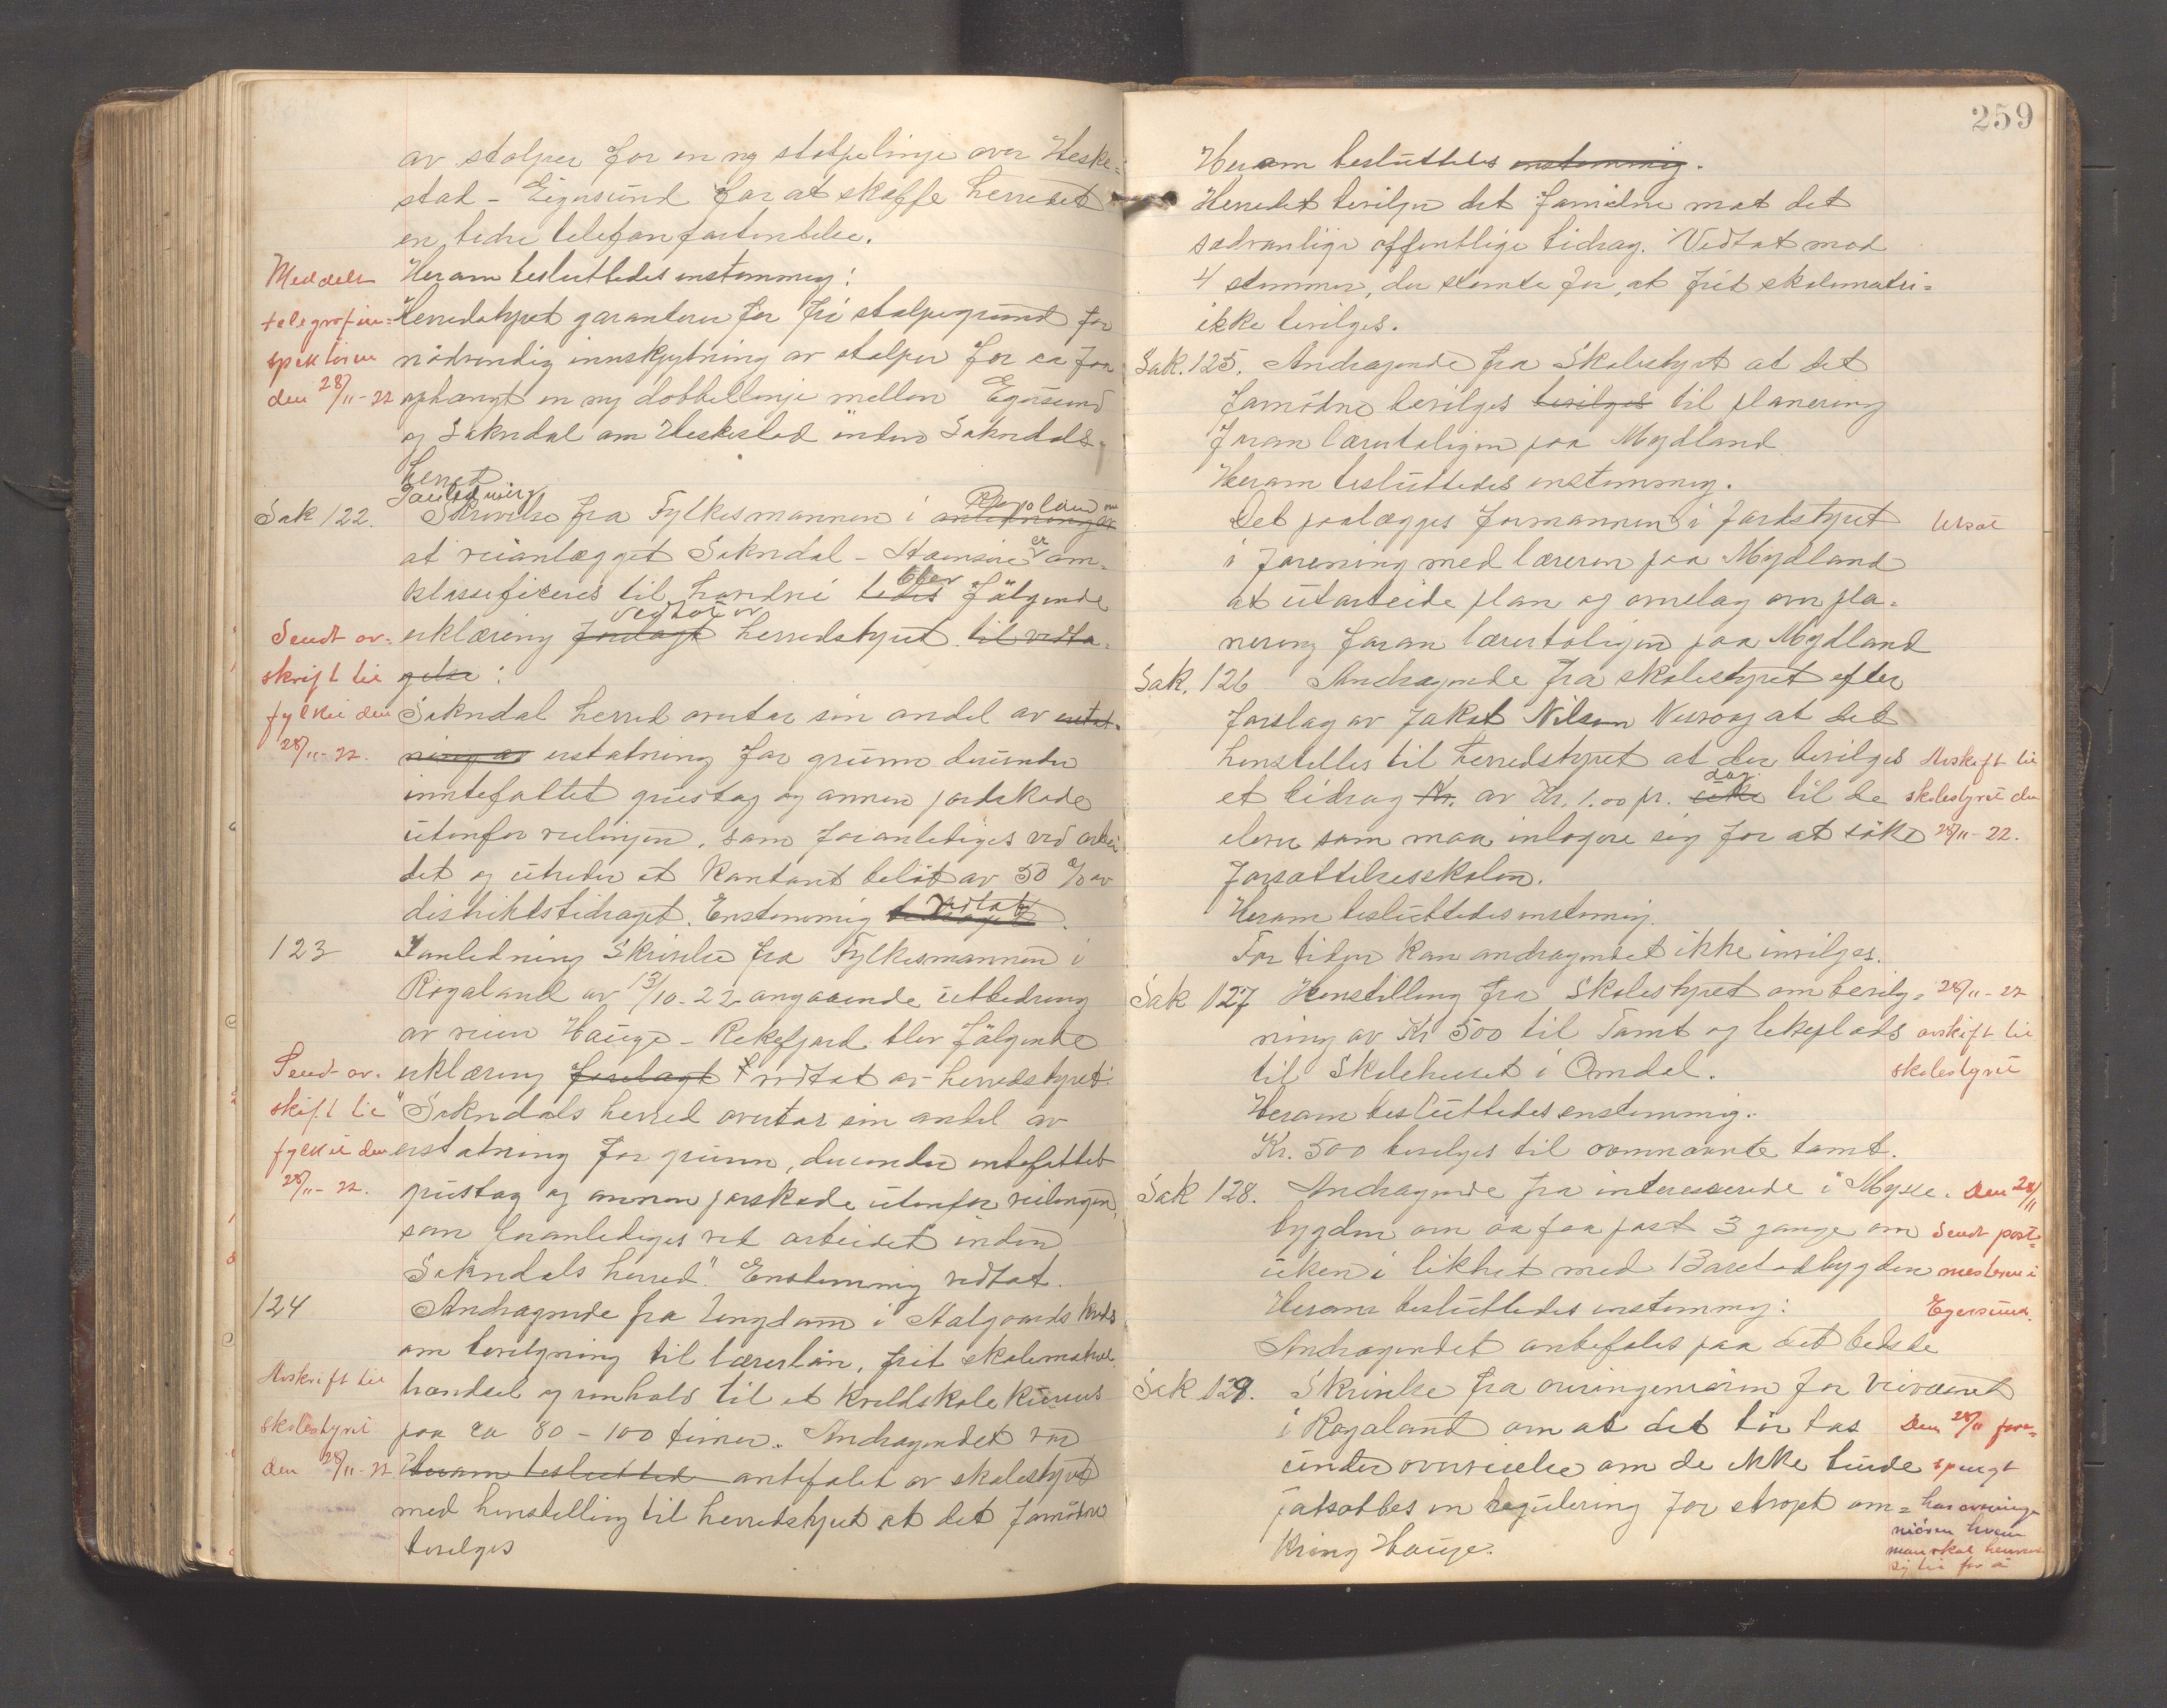 av stolper for en ny stolpelinje over Heske-
stad - Eigersund for at skaffe herredet
en bedre telefonforbindelse.
Meddelt
telegrafin-
spektören
den 28/11-22
Herom besluttedes enstemmig:
Herredstyret garanterer for fri stolpegrund for
nödvendig innskydtning av stolper for aa faa
ophængt en ny dobbellinje mellem Egersund
og Sokndal om Heskestad inden Sokndals
herred
Sak 122. I anledning Skrivelse fra Fylkesmannen i Rogaland om anledning av
at veianlægget Sokndal - Stornsire er om-
klassifiseres til hovedvei bedes blev følgende
Sendt av-
skrift til
fylket den
28/11-22.
erklæring forelagt vedtat av herredstyret til vedta-
gelse:
Sokndal herred overtar sin andel av erstat-
ning av erstatning for grunn derunder
innbefattet grustag og annen jordskade
utenfor veilinjen, som foranlediges ved arbei
det og utreder et kontant beløb av 50 % av
distriktsbidraget. Enstemmig vedtat.
123 I anledning Skrivelse fra Fylkesmannen i
Rogaland av 13/10-22 angaaende utbedring
av veien Hauge - Rekefjord blev følgende
Sendt av-
skrift til
fylket den
28/11-22.
erklæring forelagt vedtat av herredstyret:
"Sokndals herred overtar sin andel av
erstatning for grunn, derunder indbefattet
grustag og annen jorskade utenfor veilinjen,
som foranlediges ved arbeidet inden
Sokndals herred". Enstemmig vedtat.
124 Andragende fra Ungdom i Aalgaards kreds
om bevilgning til lærerlön, frit skolematriel
Avskrift til
skolestyret
den 28/11-22
brændsel og renhold til et kveldskole kursus
paa ca 80 - 100 timer. Andragendet var
Herom besluttedes anbefalet av skolestyret
med henstilling til herredstyret at det fornödne
bevilges
259
Herom besluttedes enstemmig.
Herredet bevilger det fornødne mot det
sedvanlige offentlige bidrag. Vedtat mod
4 stemmer, der stemte for, at frit skolematri-
ikke bevilges.
Sak. 125. Andragende fra Skolestyret at det
fornödne bevilges bevilges til planering
foran lærerboligen paa Mydland
Herom besluttedes enstemmig.
Det paalægges formannen i jordstyret
i forening med læreren paa Mydland
at utarbeide plan og overslag over pla-
nering foran lærerboligen paa Mydland
Sak. 126 Andragende fra skolestyret efter
forslag av Jakob Nilsen at det
henstilles til herredstyret at der bevilges
et bidrag Kr. av Kr. 1.00 pr. uke dag til de
elever som maa inlogere sig for at söke
Forsættelsesskolen.
Avskrift til
skolestyret den
28/11-22.
Herom besluttedes enstemmig.
For tiden kan andragendet ikke invilges.
Sak 127 Henstilling fra Skolestyret om bevilg-
ning av Kr 500 til Tomt og lekeplads
til Skolehuset i Omdal.
28/11-22
avskrift til
skolestyret
Herom besluttedes enstemmig.
Kr. 500 bevilges til ovennævnte tomt.
Sak 128. Andragende fra interesserede i Mysse-
bygden om aa faa post 3 gange om
uken i likhet med Barstadbygden
Den 28/11
Sendt post-
mesteren i
Egersund.
Herom besluttedes enstemmig:
Andragendet anbefales paa det bedste
Sak 129. Skrivelse fra overingeniøren for veivæsenet
i Rogaland om at det bör tas
under overveielse om de ikke burde
fatsættes en regulering for ströket om-
kring Hauge.
Den 28/11 fore-
spurgt
hos overinge
niören hvem
man skal henvende
sig til for å